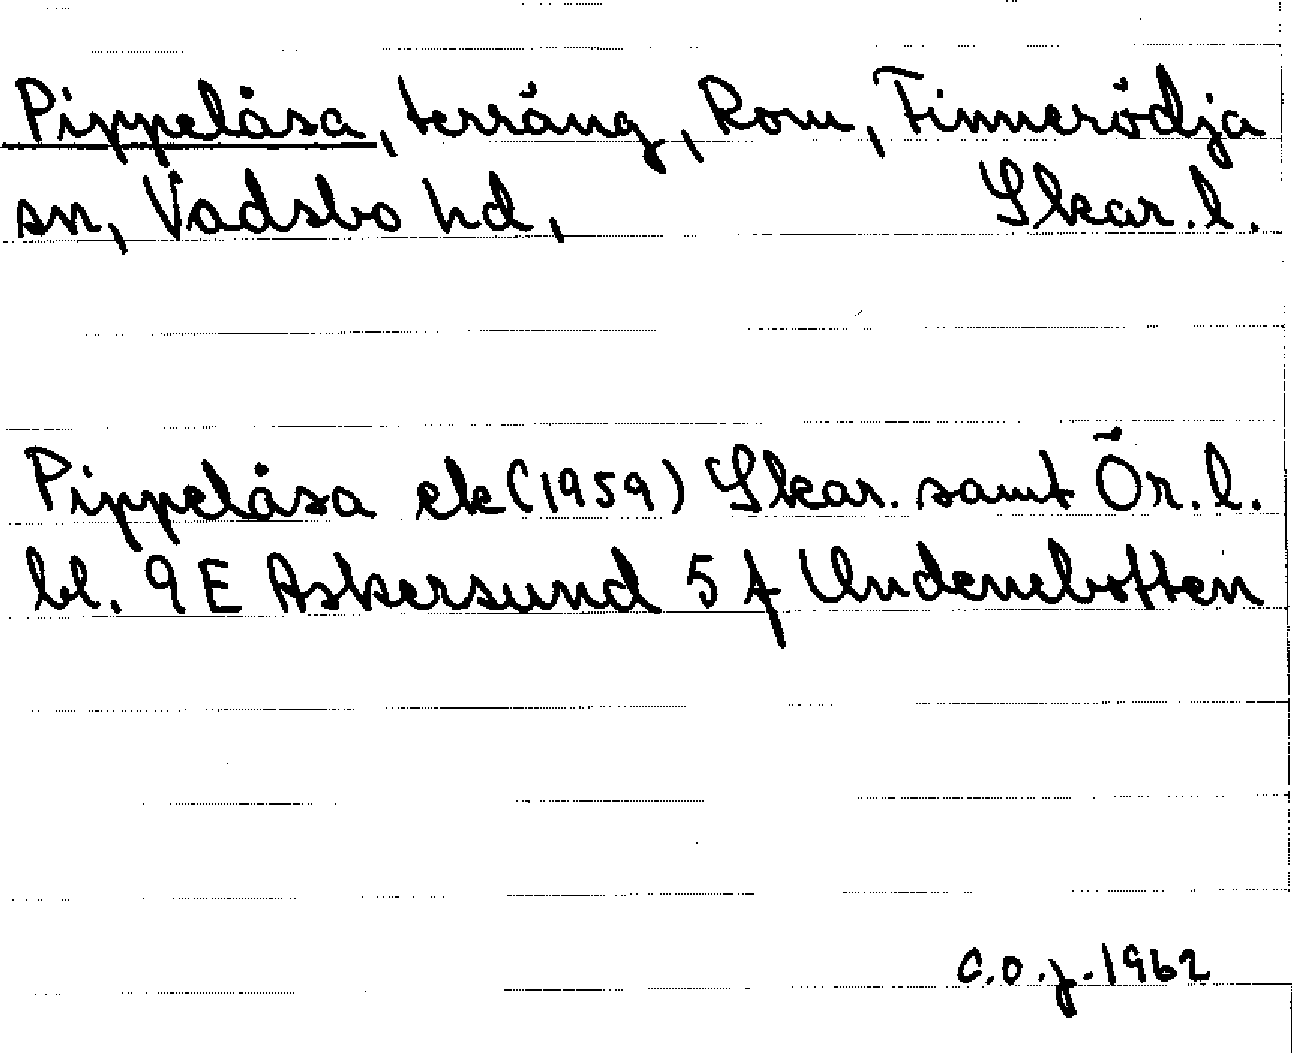 Pippelåsa, terräng, Rom, Finnerödja
sn, Vadsbo hd, Skar. l.
Pippelåsa ek (1959) Skar. samt Ör. l.
bl. 9E Askersund 5f Undenebotten
C.O.J. 1962